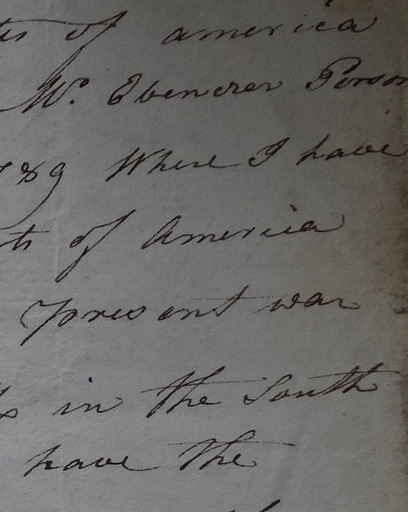 ts of america
Mr. Ebenezer Parson
789 Where I have
ts of America
present war
in the South
have the